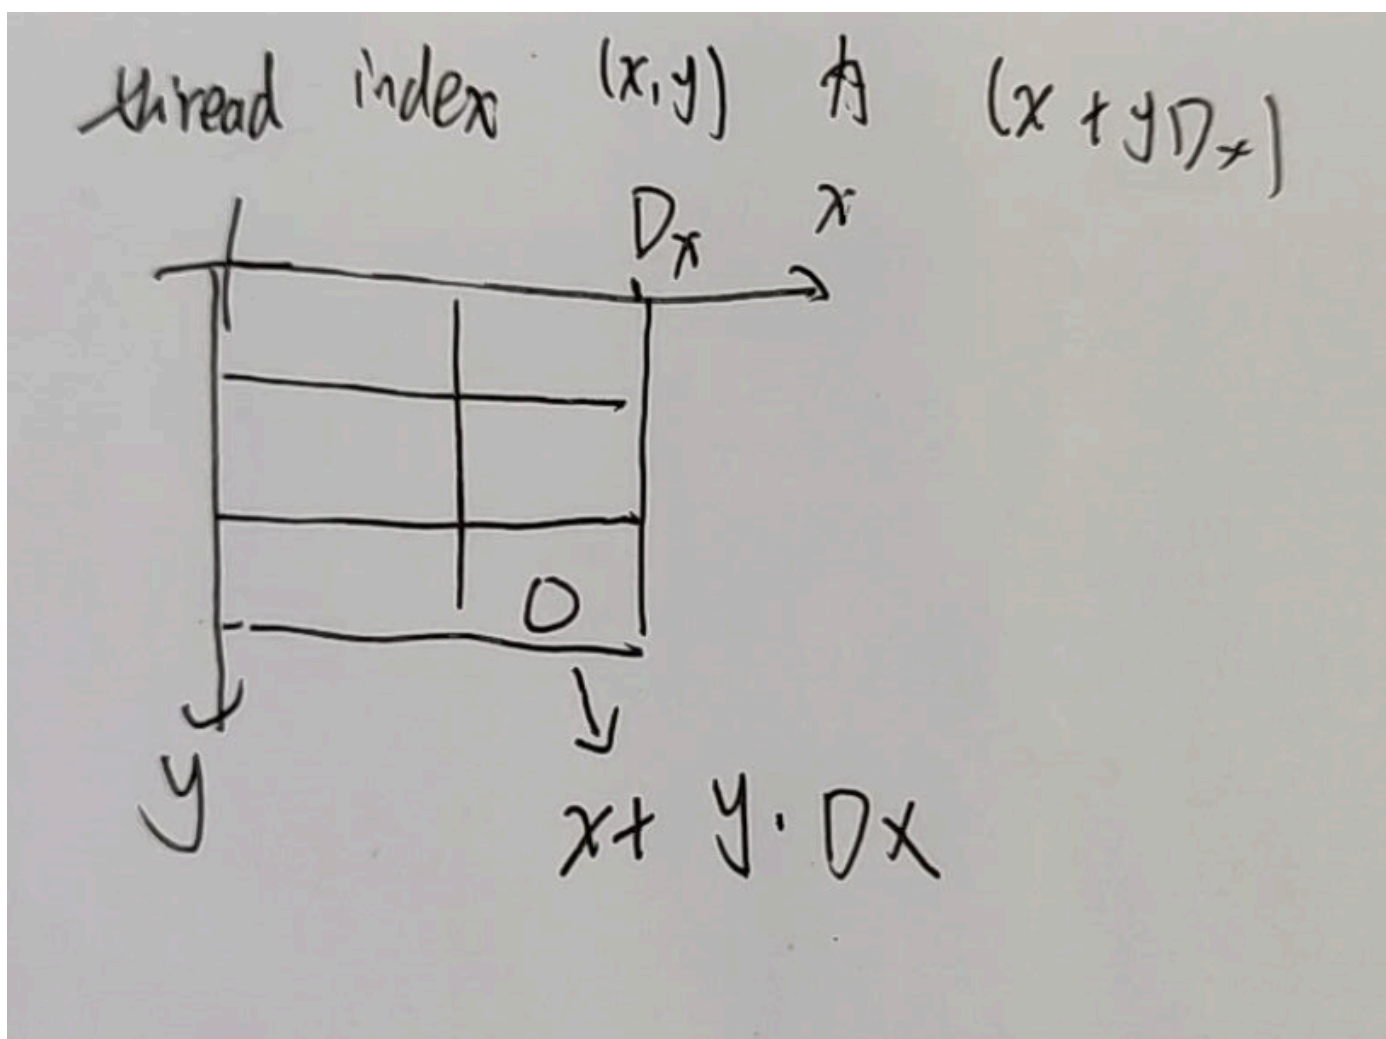 thread index (x,y) 为 (x + yDx)
Dx
x
y
x + y · Dx